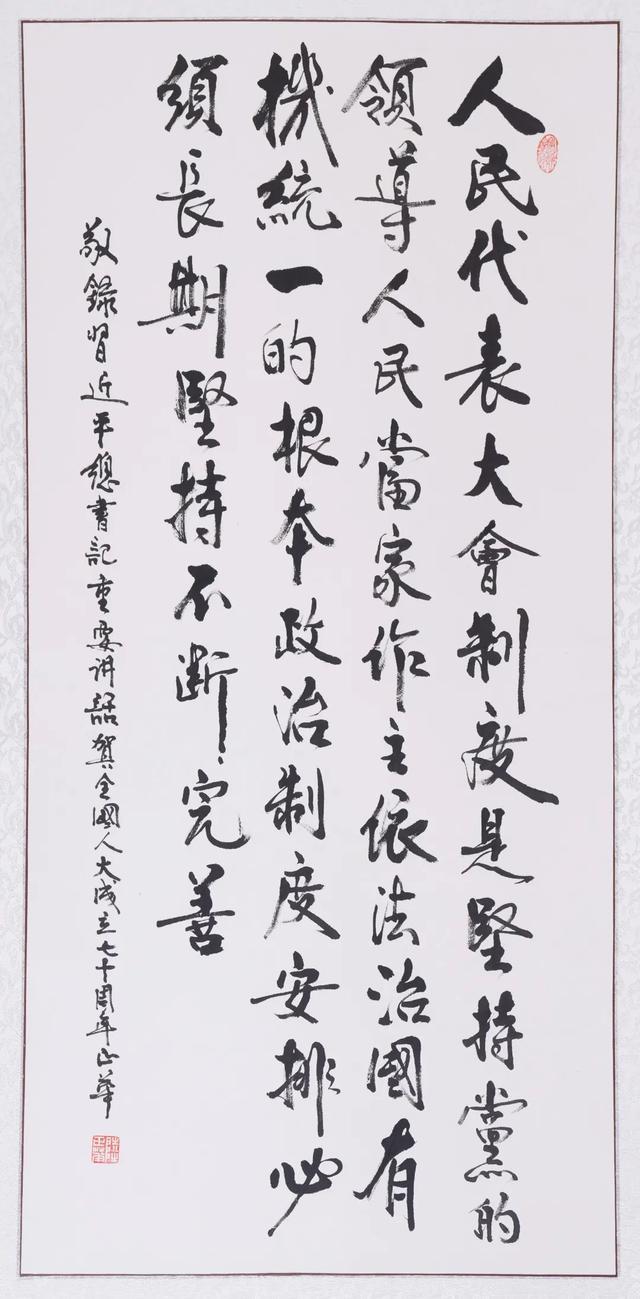 人民代表大會制度是堅持黨的
領導人民當家作主依法治國有
機統一的根本政治制度安排必
須長期堅持不斷完善
敬錄習近平總書記重要讲話賀全國人大成立七十周年正華